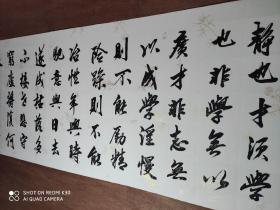 靜也才須學
也非學無以
廣才非志無
以成學淫慢
則不能勵精
險躁則不能
冶性年與時
馳意與日去
遂成枯落多
不接世悲守
窮廬將復何
SHOT ON REDMI K30
AI QUAD CAMERA